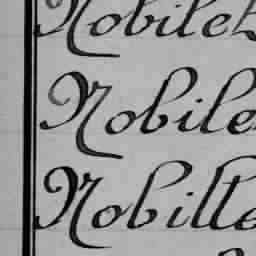 Nobile
Nobile
Nobille